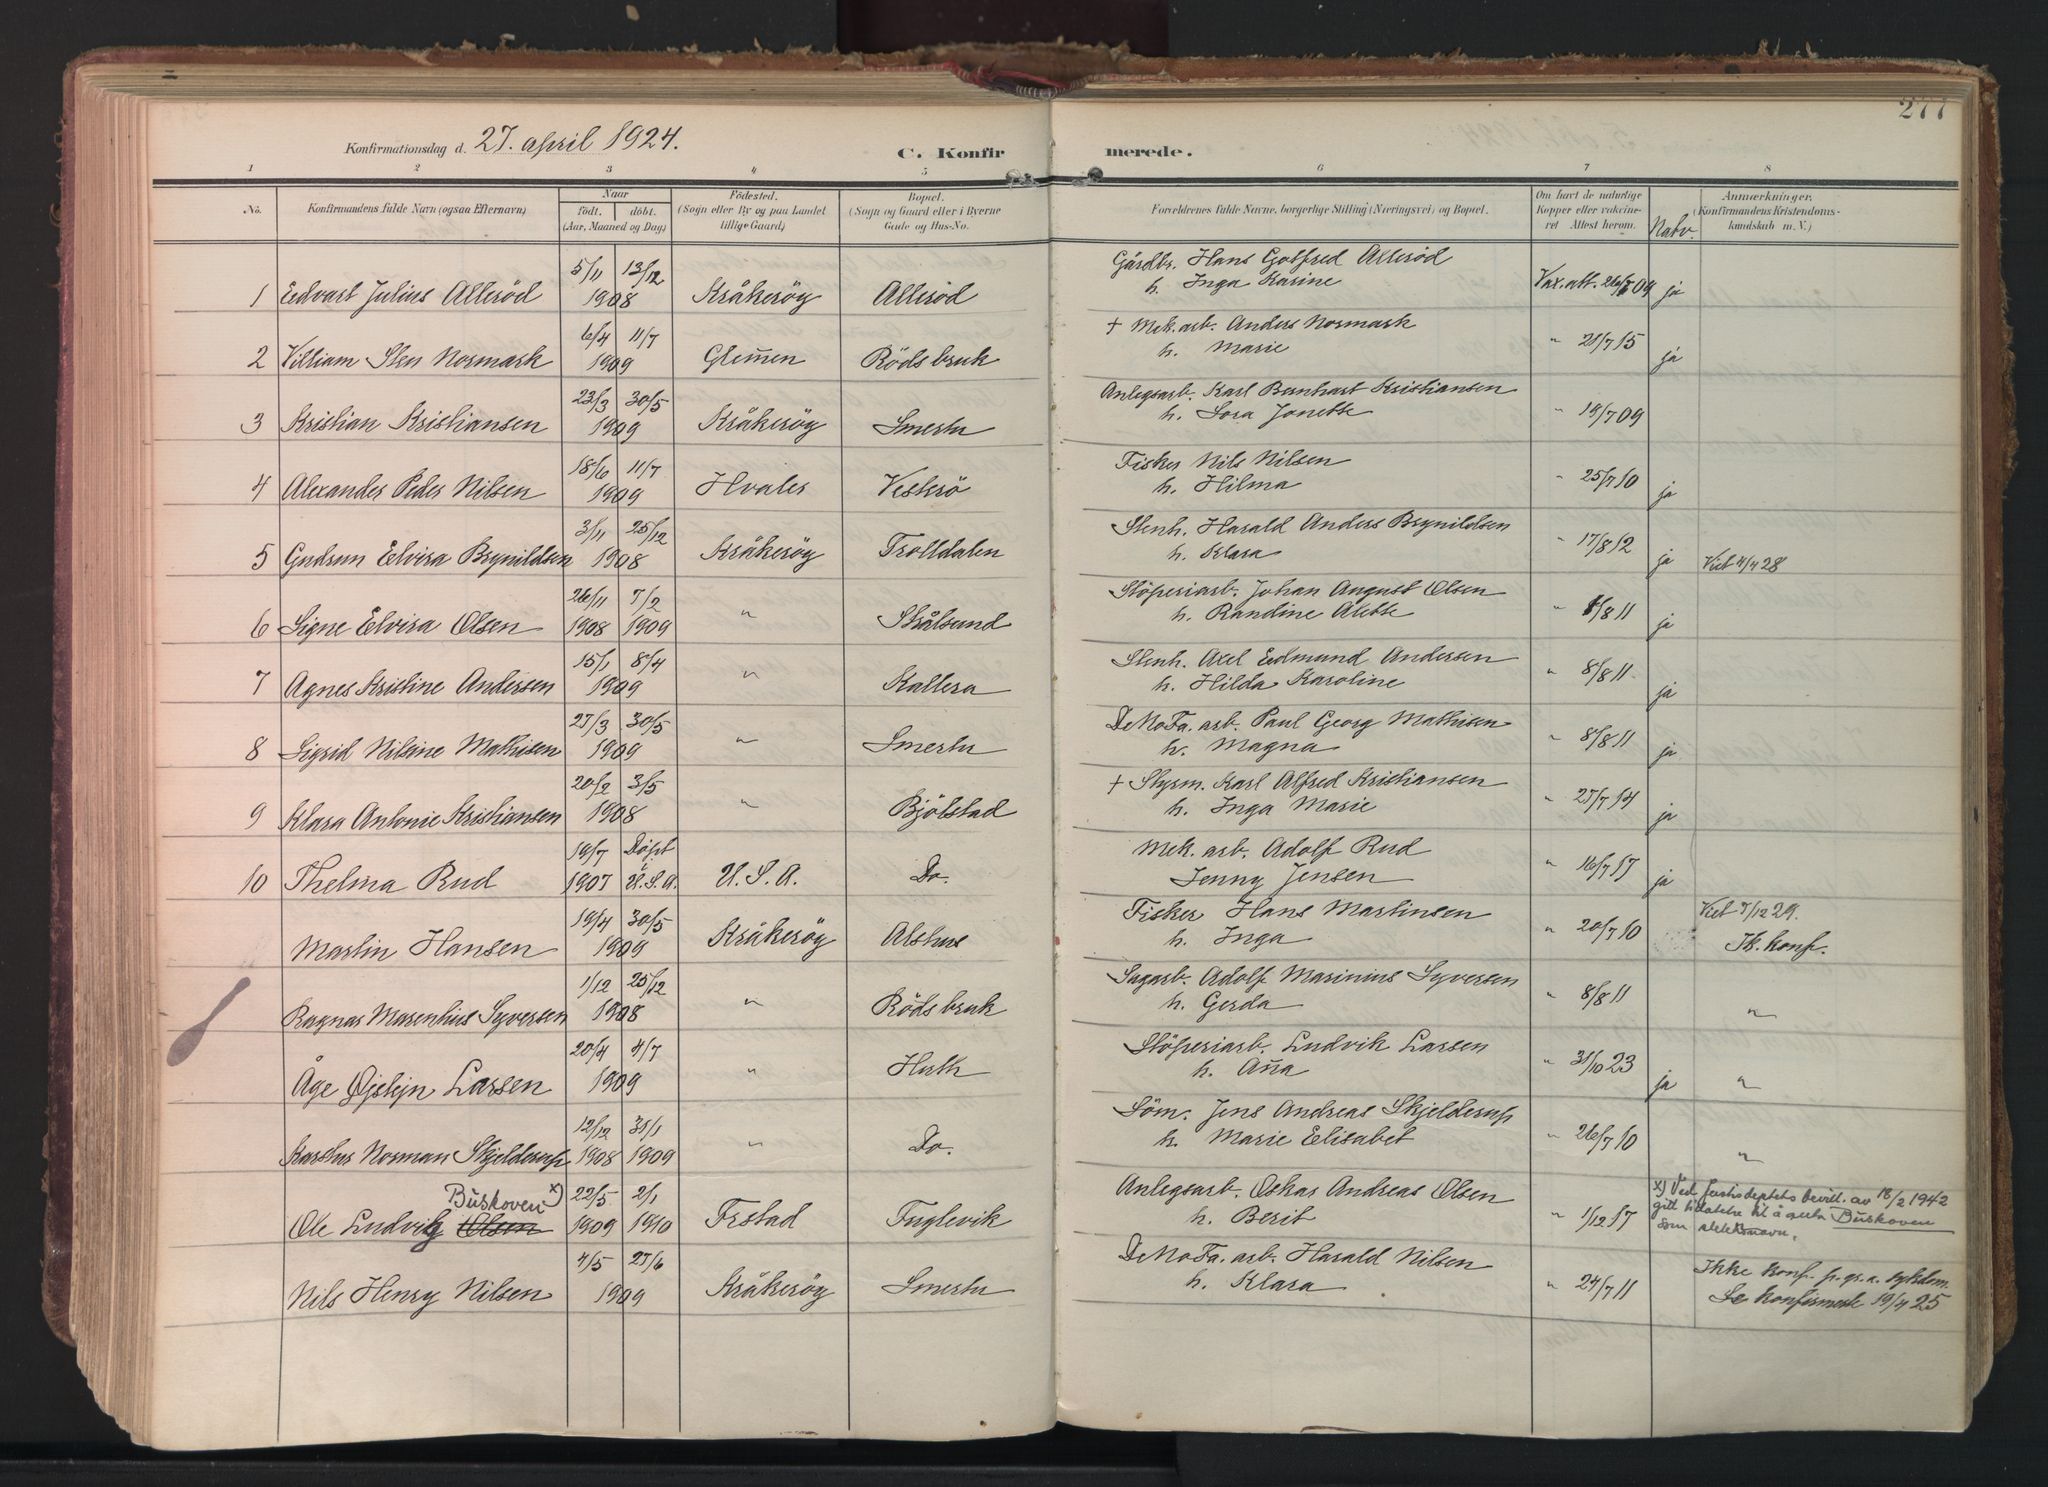 277
Konfirmationsdag d. 27. april 1924.
C. Konfirmerede.
1 2 3 4 5 6 7 8
No. Konfirmandens fulde Navn (ogsaa Efternavn) Naar födt. döbt. (Aar, Maaned og Dag) Födested. (Sogn eller By og paa Landet tillige Gaard) Bopæl. (Sogn og Gaard eller i Byerne Gade og Hus-No. Forældrenes fulde Navne, borgerlige Stilling (Næringsvei) og Bopæl. Om havt de naturlige Kopper eller vaccineret. Attest herom. Natv. Anmærkninger. (Konfirmandens Kristendomskundskab m. V.)
1 Edvart Julius Alleröd 5/11 13/12 1908 Kråkeröy Alleröd Gårdbr. Hans Gotfred Alleröd h. Inga Karine Vax. att. 09 ja
2 Villiam Sten Normark 6/4 11/7 1909 Glem̄en Röds bruk + Mek. arb. Anders Normark h. Marie " 21/7 15 ja
3 Kristian Kristiansen 23/3 30/5 1909 Kråkeröy Smertu Anlegsarb. Karl Bernhart Kristiansen h. Lora Jonette " 19/7 09
4 Alexander Peder Nilsen 18/6 11/7 1909 Hvaler Vesterö Fisker Nils Nilsen h. Hilma " 25/7 10 ja
5 Gudrun Elvira Brynildsen 3/11 25/12 1908 Kråkeröy Trolldalen Stenh. Harald Anders Brynildsen h. Klara " 17/8 12 ja Viet 4/4 28
6 Signe Elvira Olsen 26/11 1908 7/2 1909 " Skålsund Stöperiarb. Johan August Olsen h. Randine Alette " 8/8 11 ja
7 Agnes Kristine Andersen 15/1 8/4 1909 " Kallera Stenh. Axel Edmund Andersen h. Hilda Karoline " 8/8 11. ja
8 Sigrid Nilsine Mathisen 27/3 30/5 1909 " Smertu DeNoFa. arb. Paul Georg Mathisen h. Magna " 8/8 11 ja
9 Klara Antonie Kristiansen 20/2 3/5 1908 " Bjölstad + Styrm. Karl Alfred Kristiansen h. Inga Marie " 27/7 14 ja
10 Thelma Rud 19/7 1907 Döpt i U.S.A. U. S. A. Do. Mek. arb. Adolf Rud Jenny Jensen " 16/7 17 ja
Martin Hansen 19/4 30/5 1909 Kråkeröy Alshus Fisker Hans Martinsen h. Inga " 20/7 10 Viet 7/12 29. Ik. konf.
Ragnar Marenhius Syversen 1/12 25/12 1908 " Röds bruk Sagarb. Adolf Marinius Syversen h. Gerda " 8/8 11 "
Åge Øistejn Larsen 20/4 4/7 1909 " Huth Stöperiarb. Ludvik Larsen h. An̄a " 31/10 23 ja "
Karsten Norman Skjelderup 12/12 1908 31/1 1909 " Do. Söm. Jens Andreas Skjelderup h. Marie Elisabet " 26/7 10 "
Buskoven x)
Ole Ludvig Olsen 22/5 1909 2/1 1910 Frstad Fuglevik Anlegsarb. Oskar Andreas Olsen h. Berit " 1/12 17 x) Ved Justisdeptets bevill. av 18/2 1942 gitt tillatelse til å anta Buskoven som slektsnavn.
Nils Henry Nilsen 4/5 27/6 1909 Kråkeröy Smertu DeNoFa. arb. Harald Nilsen h. Klara " 24/7 11 Ikke konf. p. gr. a. sykdom. Se konfirmerte 19/4 25